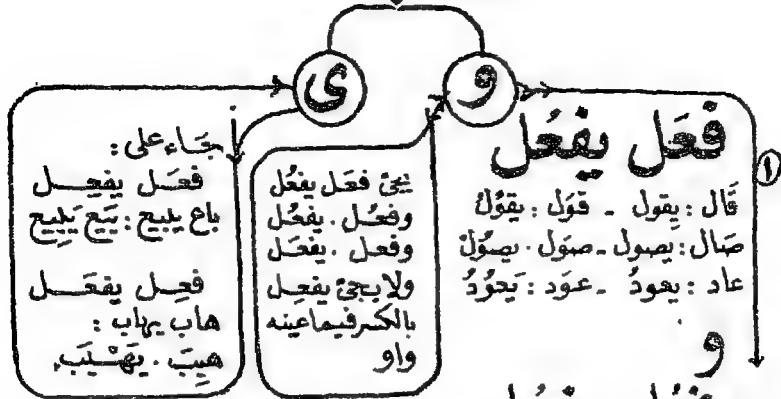 و
ى
①
فعَل يفعُل
قَال : يقول - قَوَل : يقوُلُ
صَال : يصول - صوَل . يصوُلُ
عاد : يعودُ - عوَد : يَعوُدُ
و
يجئ فعَل يفعُل
وفعُل . يفعُل
وفعِل . يفعَل
ولا يجئ يفعِل
بالكسر فيما عينه
واو
جَاء على :
فعَل يفعِل
باع يبيع : بَيَع يَبيِع
فعِل يفعَل
هاب يهاب :
هيِبَ . يَهْيَب